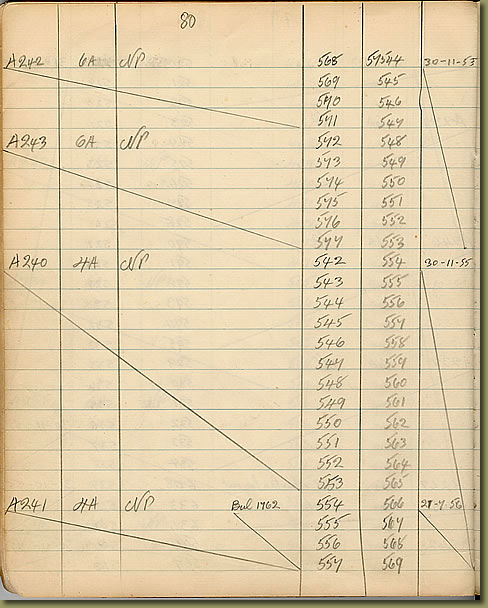 80
A242 6A NP 568 59544 30-11-55
569 545
570 546
571 547
A243 6A NP 572 548
573 549
574 550
575 551
576 552
577 553
A240 4A NP 542 554 30-11-55
543 555
544 556
545 557
546 558
547 559
548 560
549 561
550 562
551 563
552 564
553 565
A241 4A NP Bul 1762 554 566 27-7-56
555 567
556 568
557 569